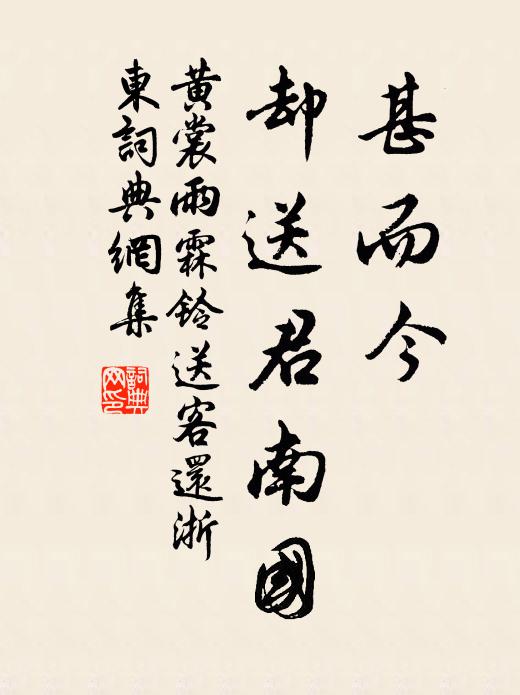 甚而今
却送君南國
黄裳雨霖鈴送客還浙
東詞典網集
詞典網印